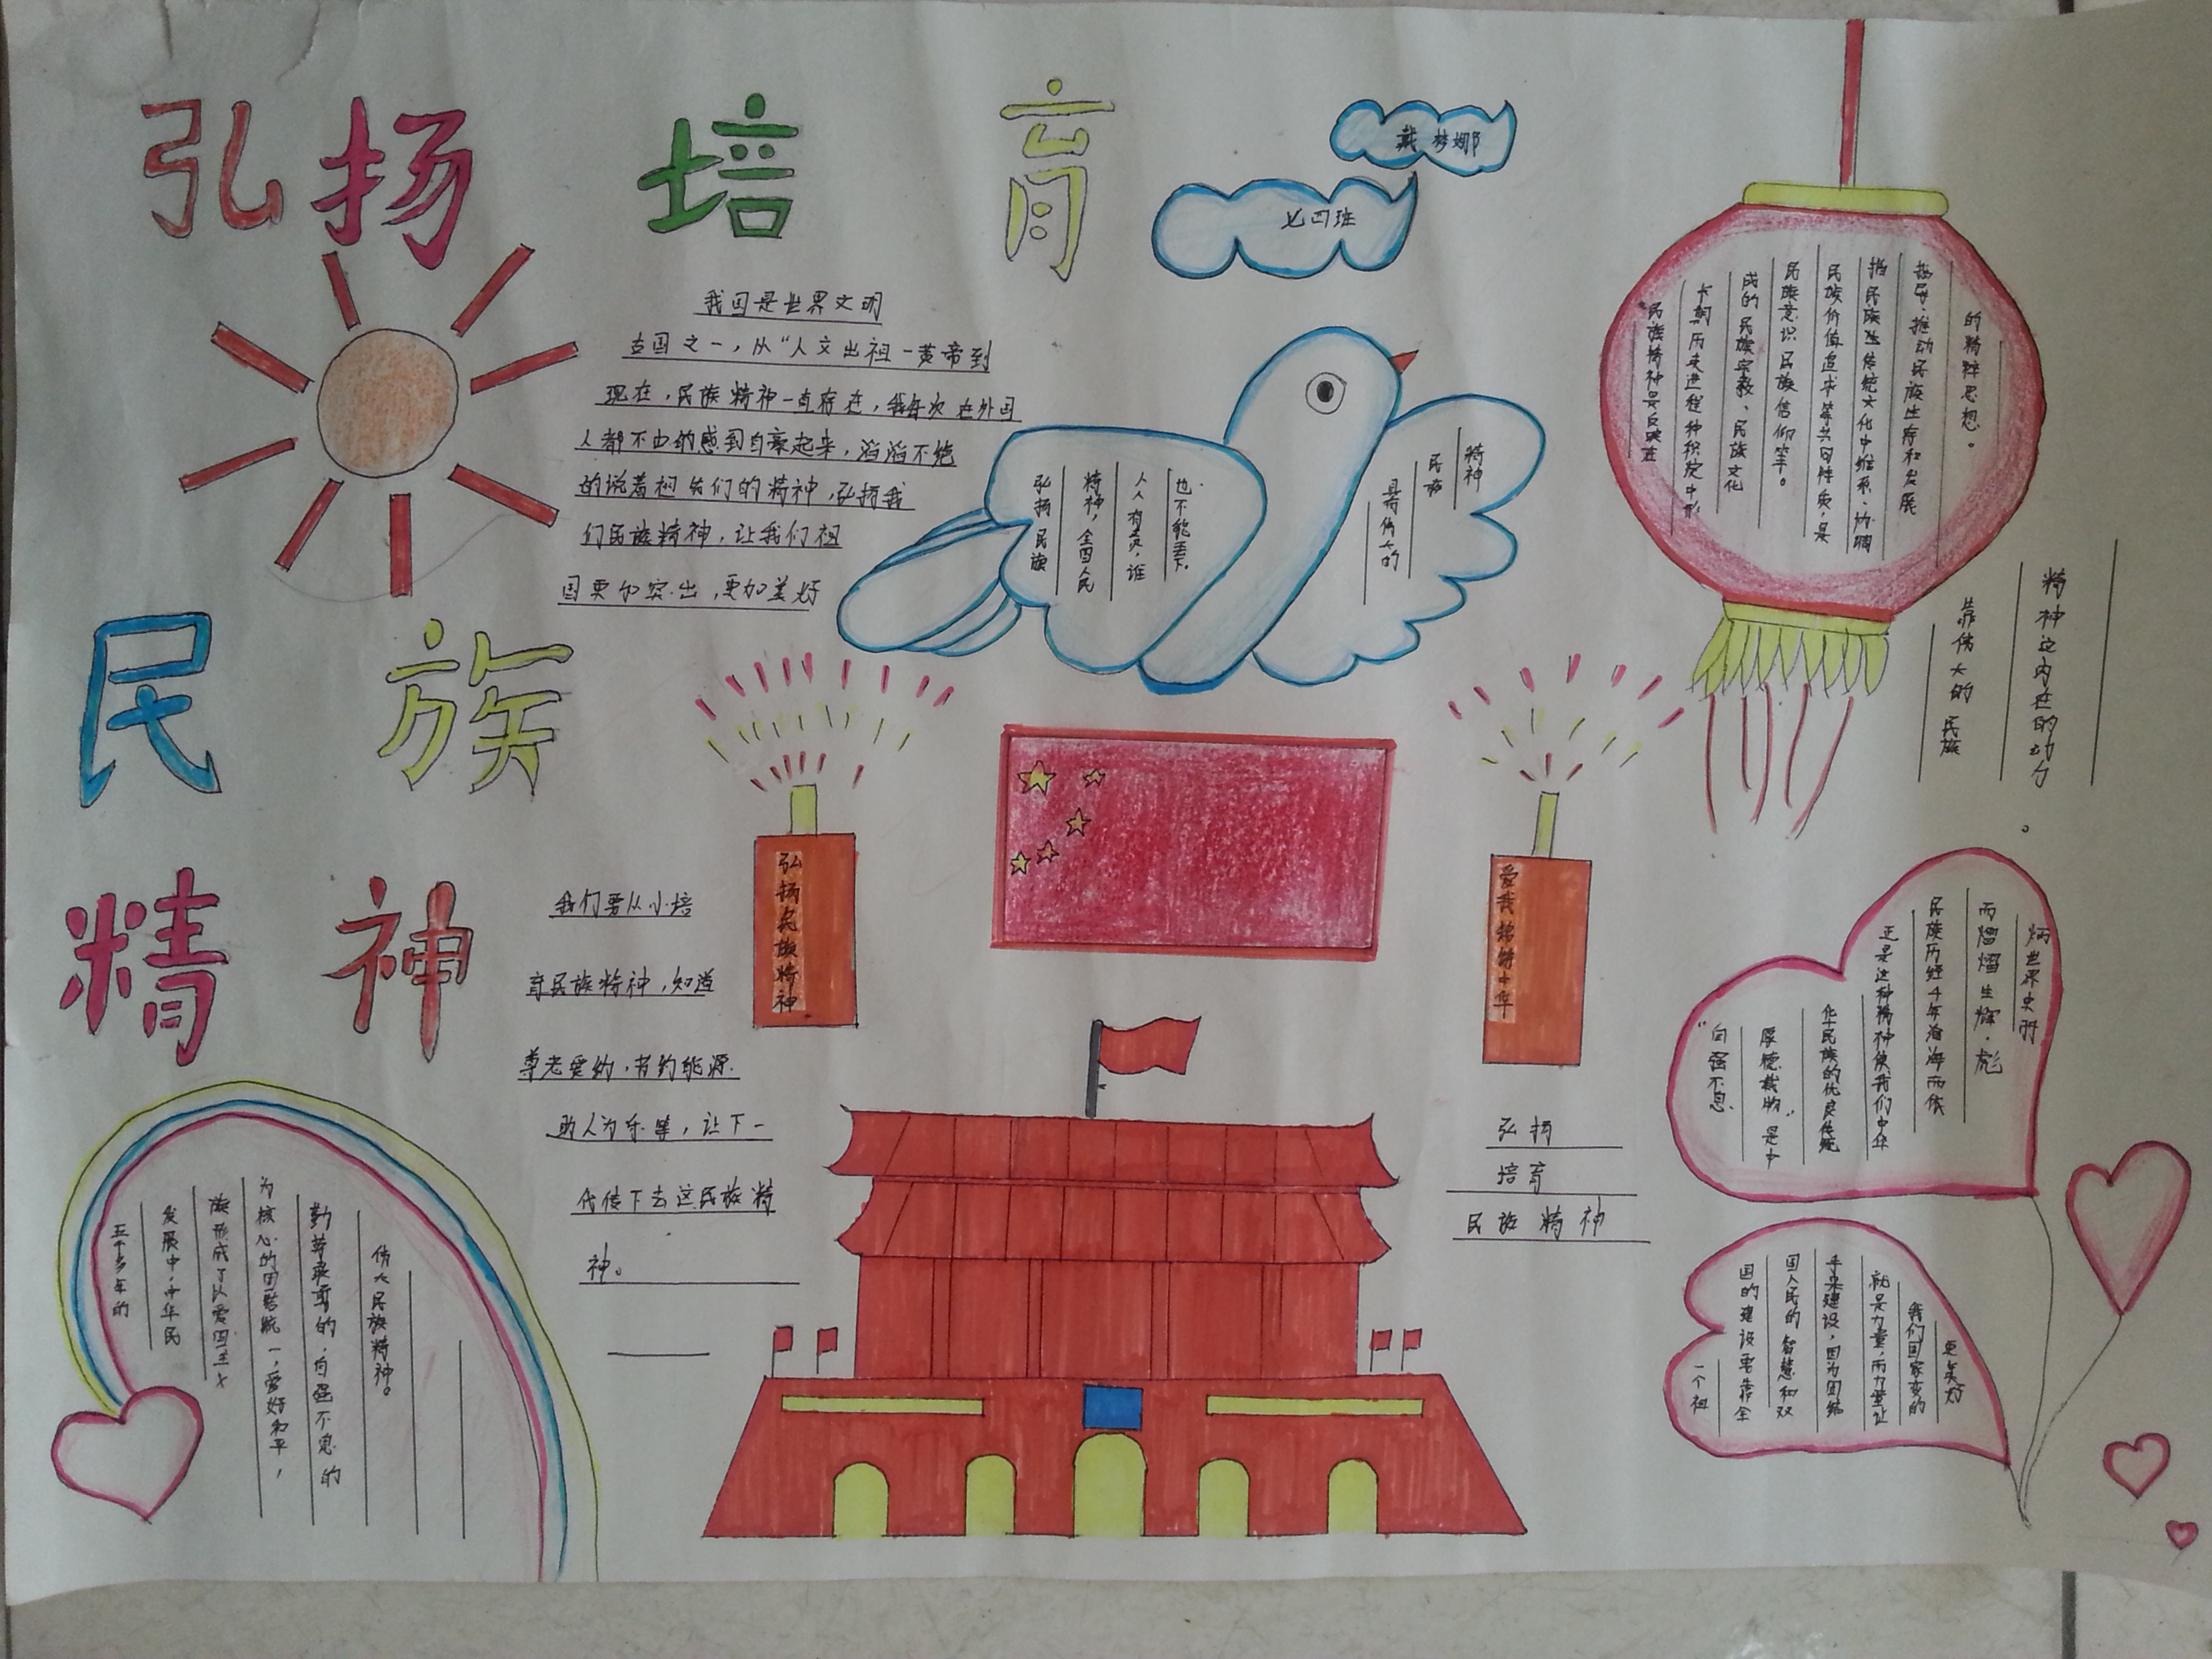 弘扬 培育
民族
精神
戴梦娜
七四班
我国是世界文明
古国之一，从“人文出祖一黄帝到
现在，民族精神一直存在，我每次在外国
人都不由的感到自豪起来，滔滔不绝
的说着祖先们的精神，弘扬我
们民族精神，让我们祖
国更加突出，更加美好
弘扬民族
精神，全国人民
人人有责，谁
也不能丢下.
具有伟大的
民族
精神
“民族精神是反映在
长期历史进程种积淀中形
成的民族宗教、民族文化
民族意识民族信仰等。
民族价值追求等共同特质，是
指民族生传统文化中维系、协调
指导、推动民族生存和发展
的精粹思想。
靠伟大的民族
精神这内在的动力
。
弘扬民族精神
爱我
中华
我们要从小培
育民族精神，知道
尊老爱幼，节约能源.
助人为乐等，让下一
代传下去这民族精
神。
弘扬
培育
民族精神
“自强不息、
厚德载物”是中
华民族的优良传统
正是这种精神使我们中华
民族历经千年沧海而依
而熠熠生辉.彪
炳世界史册
一个祖
国的建设要靠全
国人民的智慧和双
手来建设，因为团结
就是力量，而力量让
我们国家变的
更美好
五千多年的
发展中，中华民
族形成了以爱国主义
为核心的团结统一，爱好和平，
勤劳勇敢的，自强不息的
伟大民族精神。